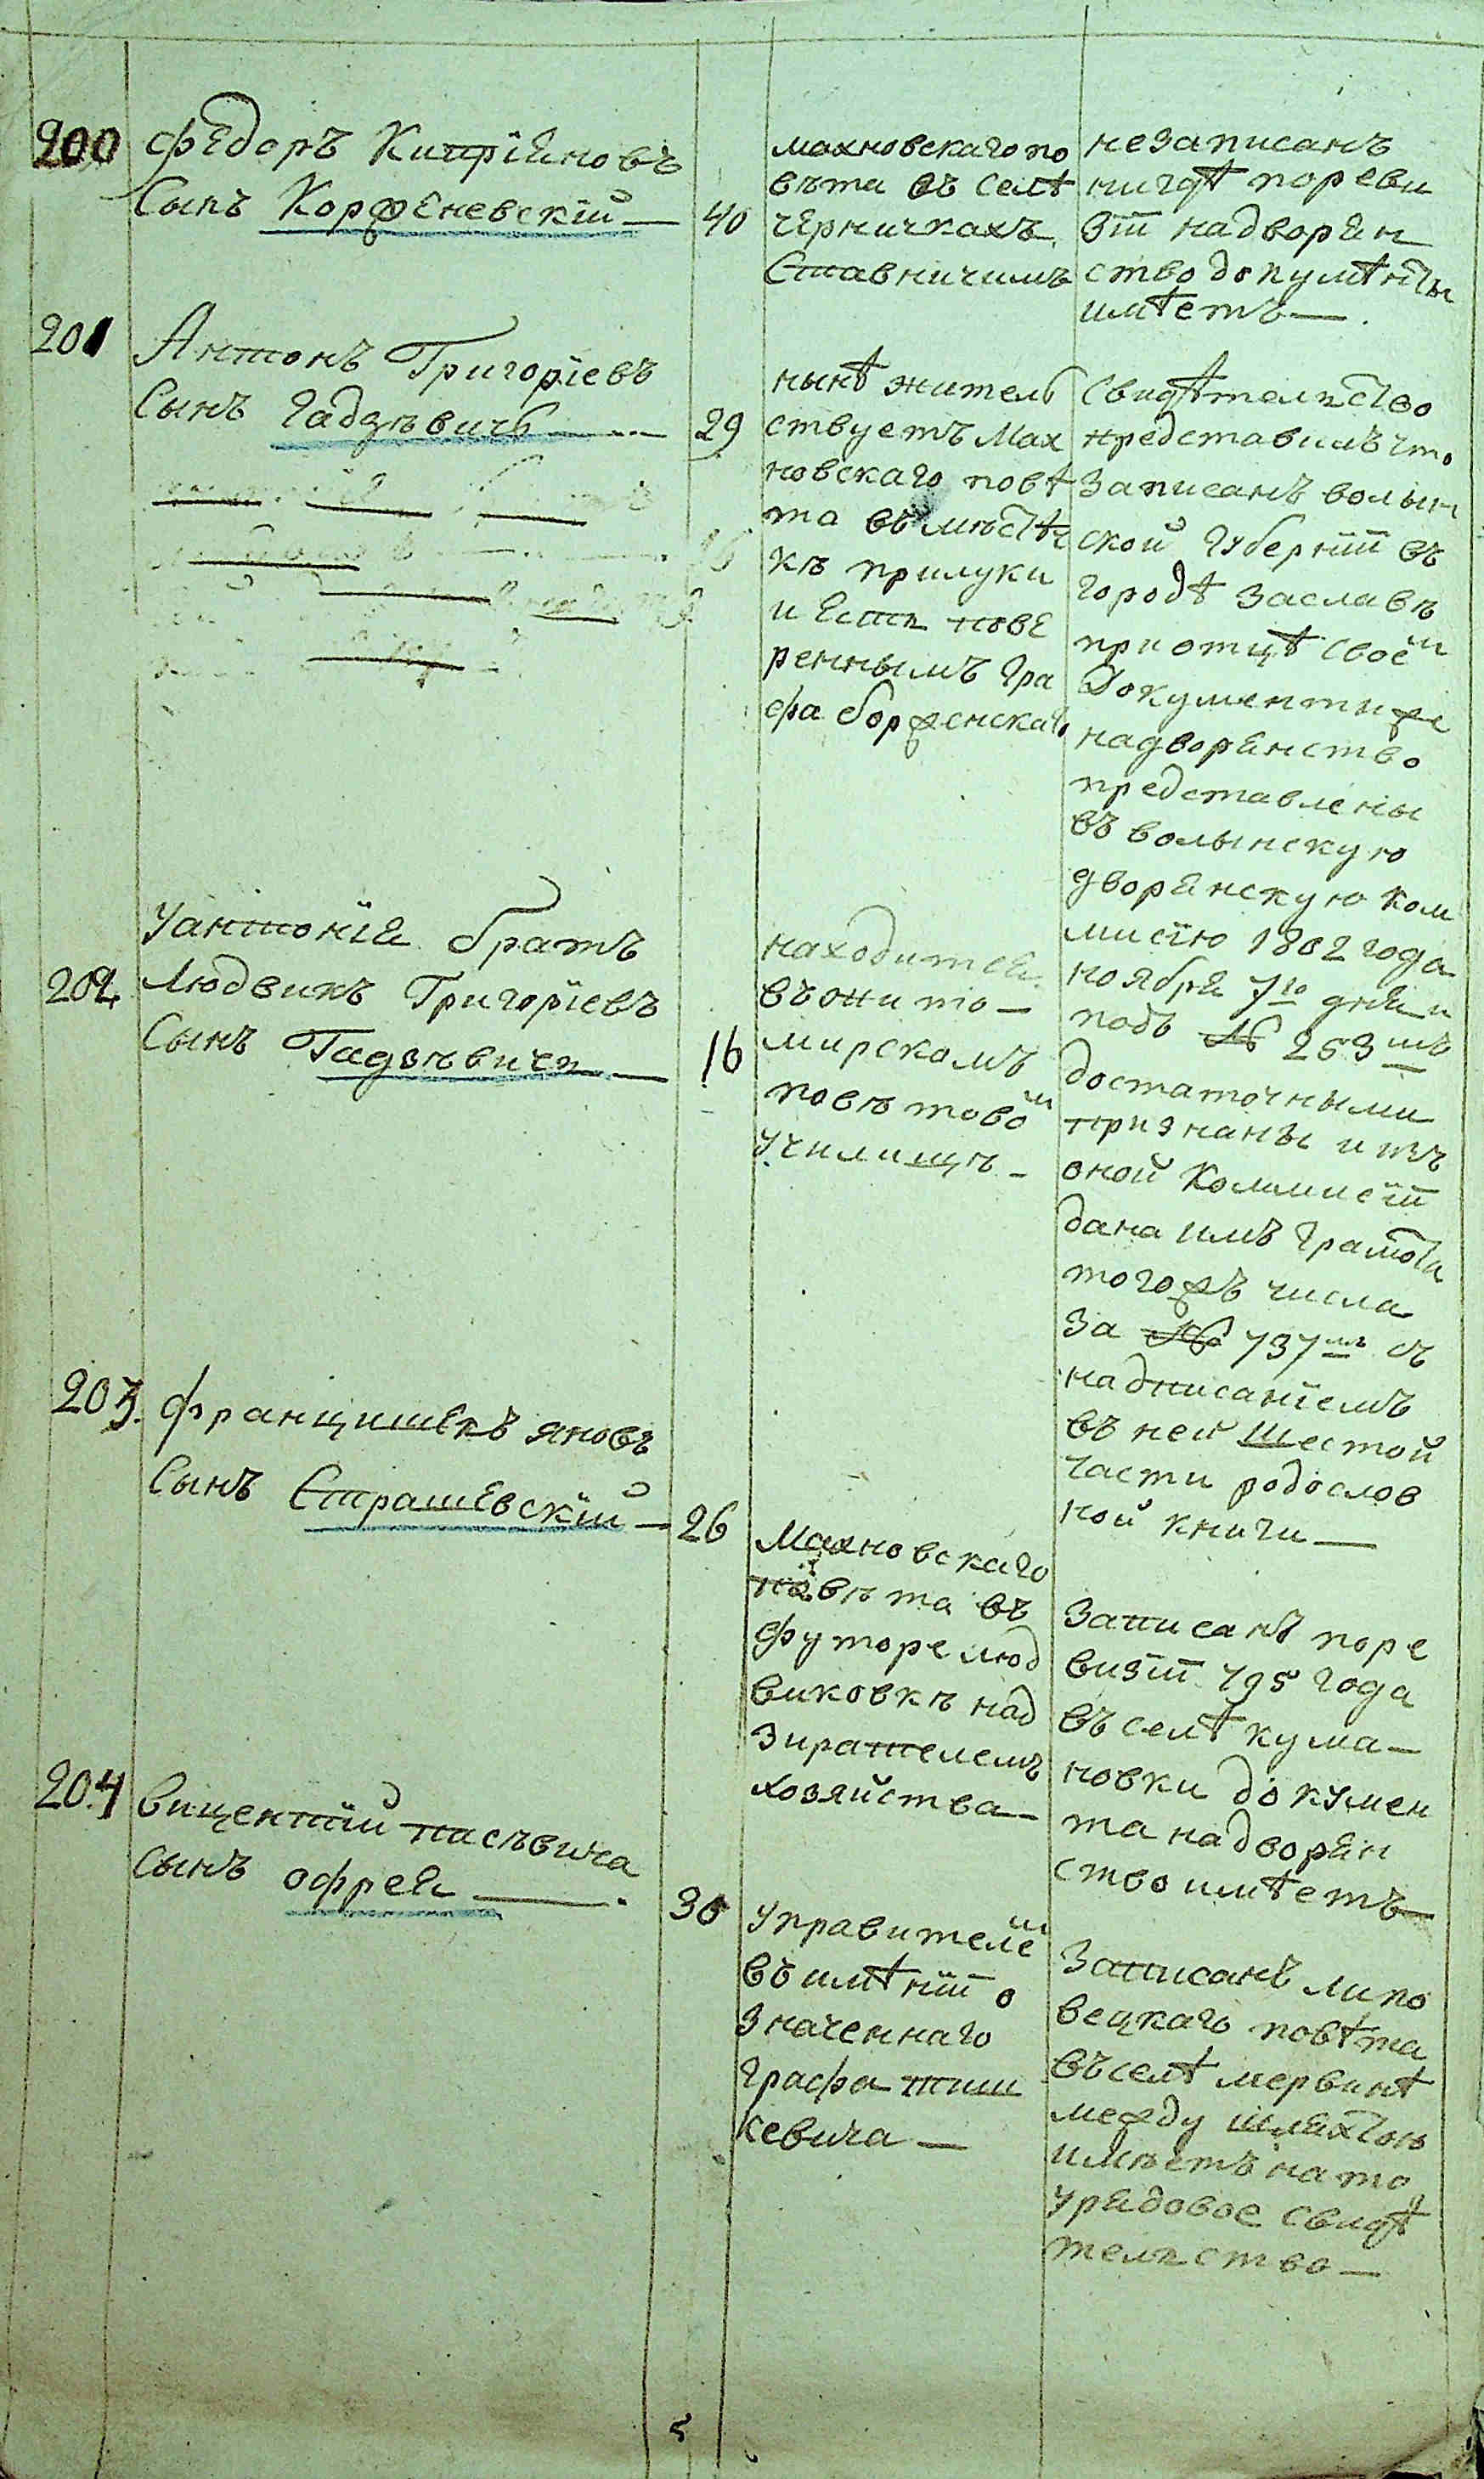 200
Федоръ Кипріяновъ
Сынъ Корженевскій —
40
махновскаго по
вѣта въ селѣ
черничкахъ
Ставничимъ
незаписанъ
нигдѣ пореви
зіи надворян
ство докумѣнты
имѣетъ —
201
Антонъ Григоріевъ
Сынъ Гадзѣвичъ
29
нынѣ житель
ствуетъ Мах
новскаго повѣ
та въ мѣстѣч
кѣ прилуки
и есть пове
реннымъ Гра
фа борженскаго
Свидѣтельство
представилъ что
Записанъ волын
ской губерніи въ
городѣ Заславѣ
приотцѣ своем
Документыже
надворянство
представлены
въ волынскую
дворянскую ком
мисію 1802 года
ноября 7го дня и
подъ № 253мъ
достаточными
признаны и тъ
оной Коммисіи
дана имъ грамота
тогожъ числа
За № 737мъ съ
надписаніемъ
въ ней шестой
части родослов
ной книги —
202
Уантонія братъ
Людвикъ Григоріевъ
Сынъ Гадзѣвичъ —
16
находится
въжито —
мирскомъ
повѣтовом
училищѣ —
203.
Францишекъ яновъ
Сынъ Страшевскій —
26
Махновскаго
повѣта въ
футоре люд
виковкѣ над
зирателемъ
хозяйства —
Записанъ поре
визіи 795 года
въ селѣ кума —
новки докумен
та надворян
ство имѣетъ —
204
Вицентій
сынъ офрея —
30
Управителем
въ имѣніи о
значеннаго
графа тиш
кевича —
Записанъ липо
вецкаго повѣта
въ селѣ мервинѣ
между шляхтою
имѣетъ на то
урядовое свидѣ
тельство —